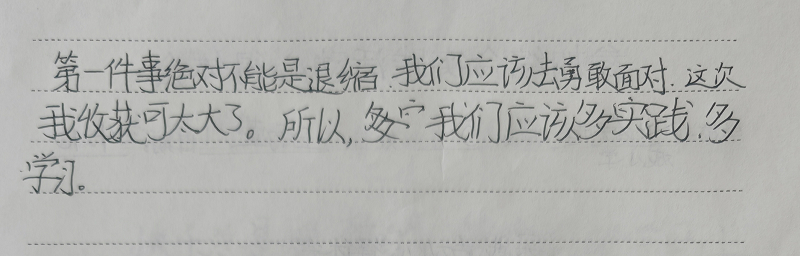 第一件事绝对不能是退缩,我们应该去勇敢面对.这次
我收获可太大了。所以,我们应该多实践,多
学习。